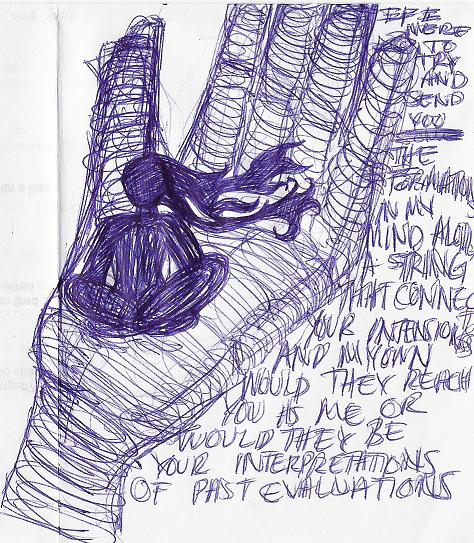 IF I
WERE
TO
TRY
AND
SEND
YOU
THE
FORMATIONS
IN MY
MIND ALONG
A STRING
THAT CONNECTS
YOUR INTENSIONS
AND MY OWN
WOULD THEY REACH
YOU AS ME OR
WOULD THEY BE
YOUR INTERPRETATIONS
OF PAST EVALUATIONS